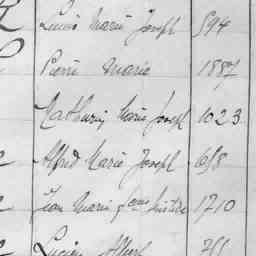 Louis Marie Joseph 594
Pierre Marie 1887
Mathurin Marie Joseph 1023
Alfred Marie Joseph 658
Jean Marie 1710
Lucien Albert